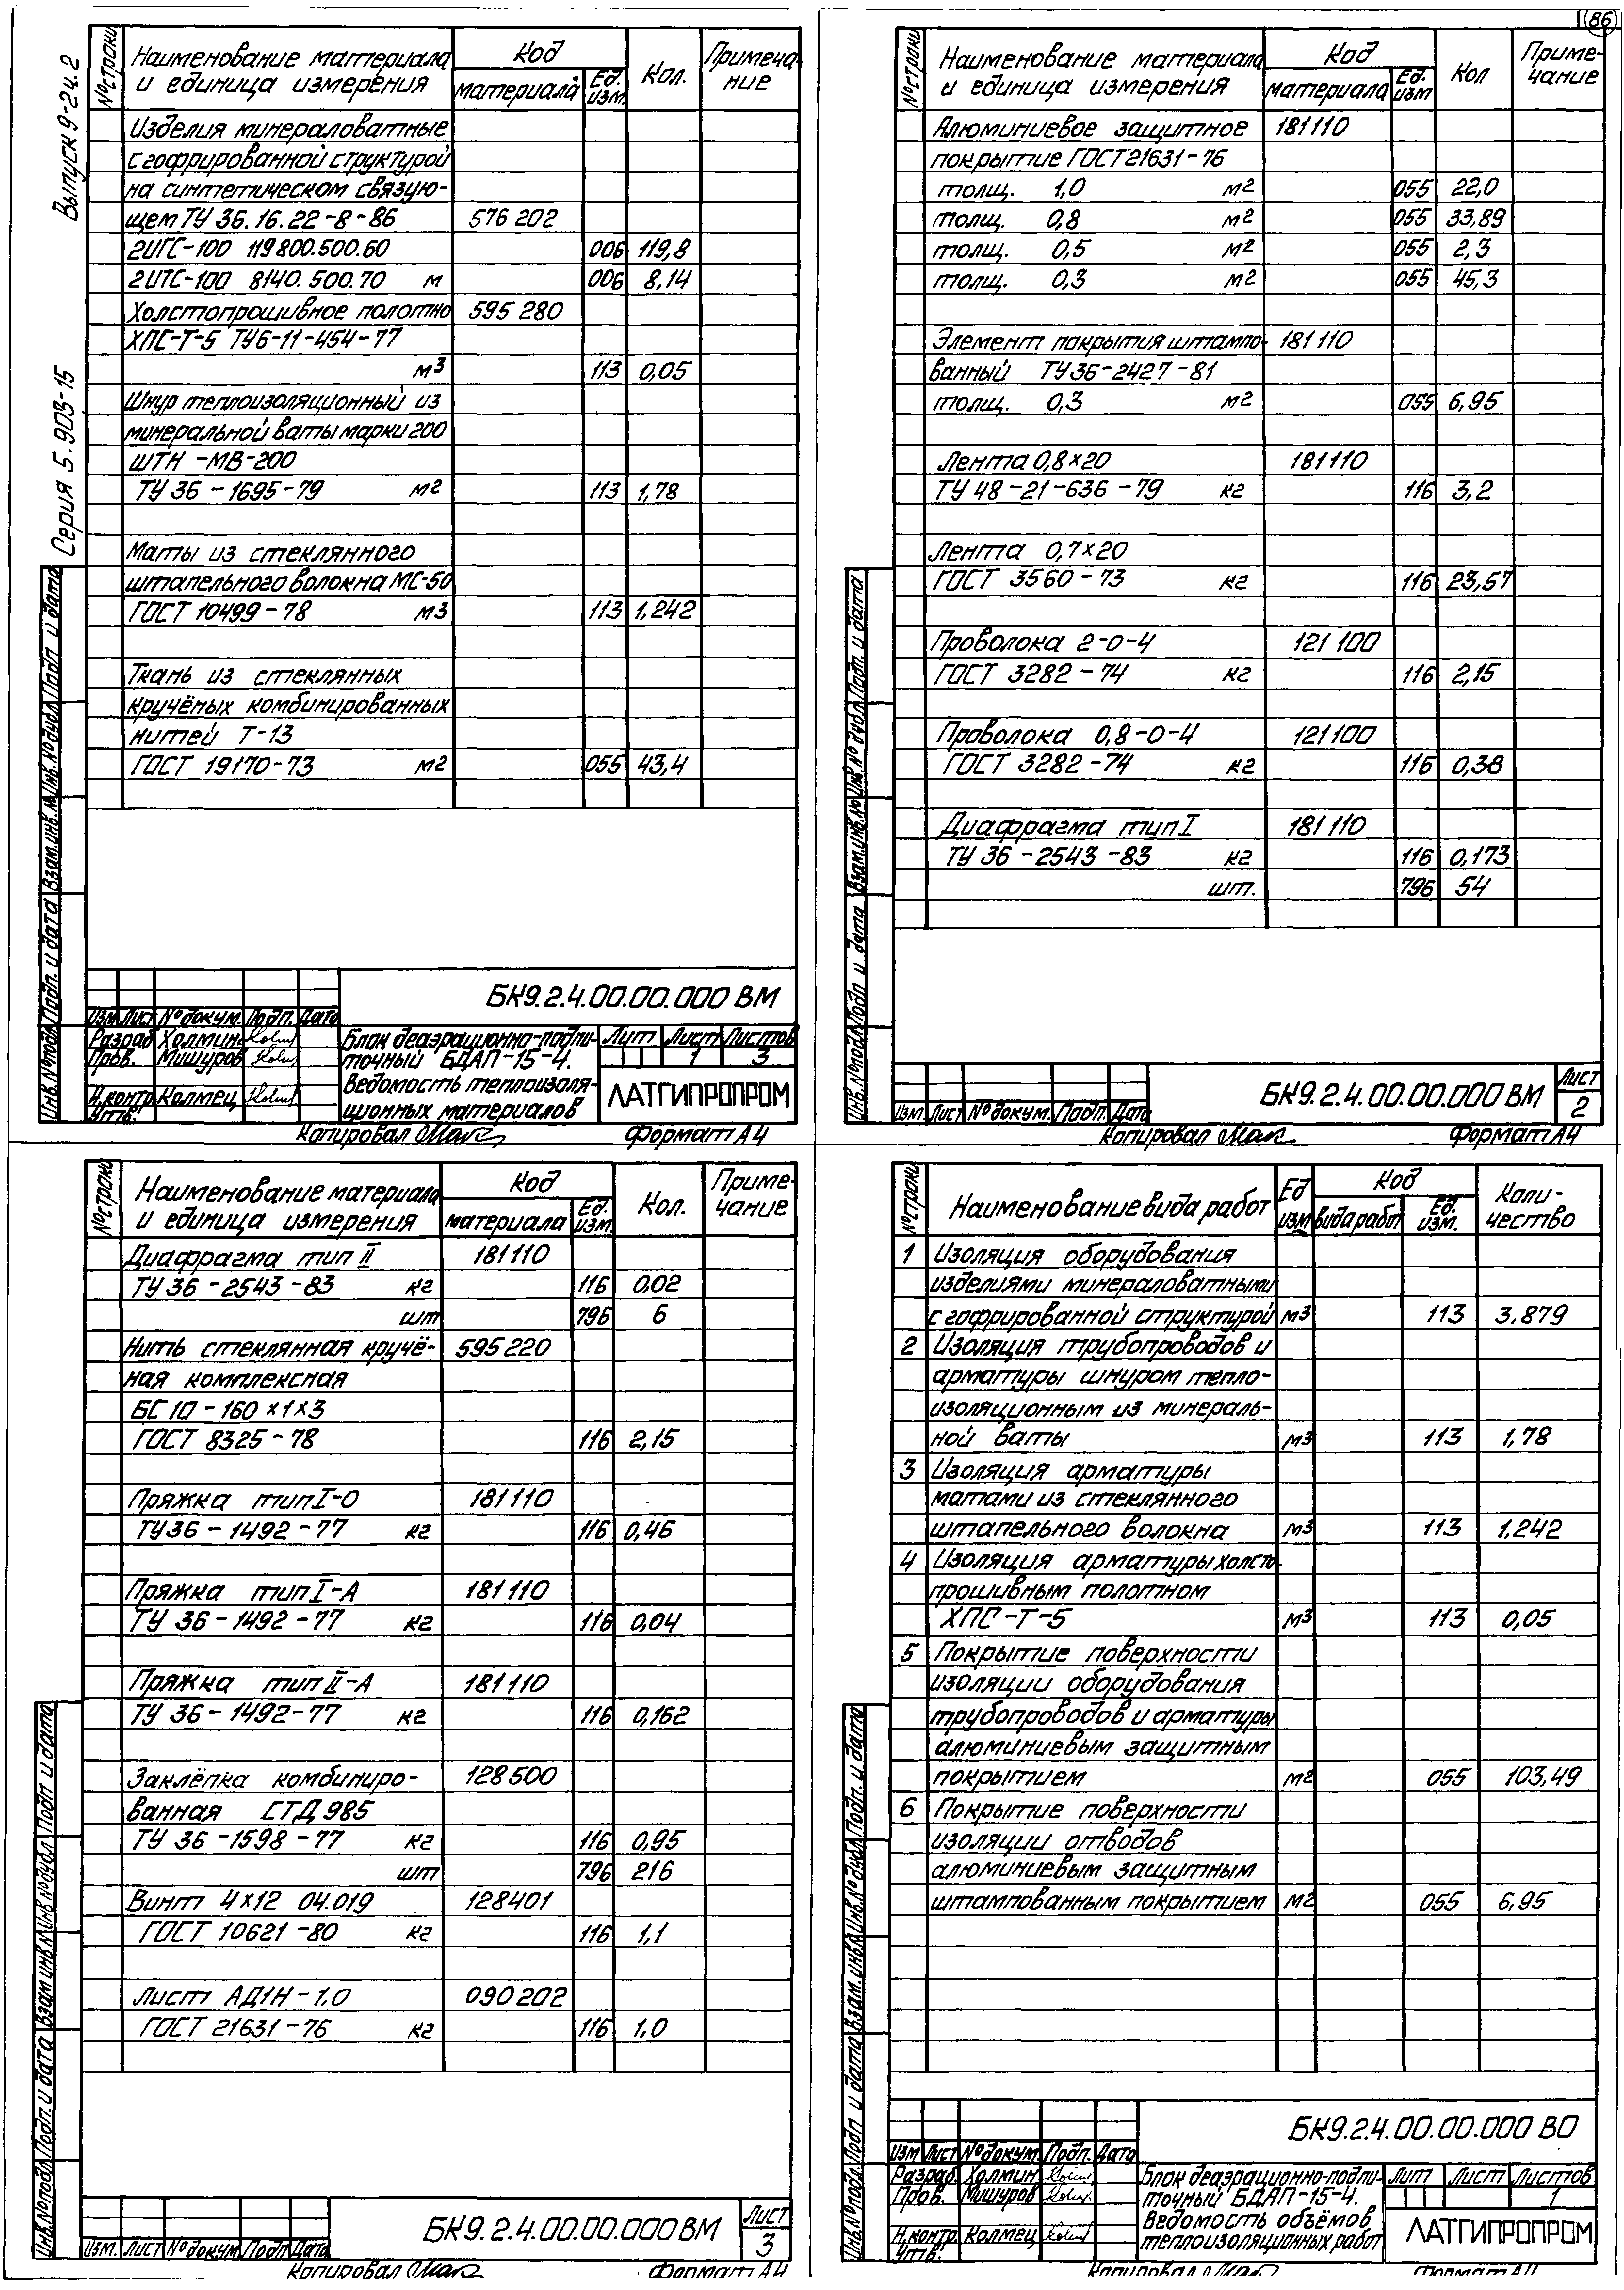 86
Выпуск 9-2 ч. 2
Серия 5.903-15
№ строки
Наименование материала
и единица измерения
Код
материала
Ед. изм.
Кол.
Примеча-
ние
Изделия минераловатные
с гофрированной структурой
на синтетическом связую-
щем ТУ 36.16.22-8-86 576 202
2ИГС-100 119800.500.60 006 119,8
2ИТС-100 8140.500.70 м 006 8,14
Холстопрошивное полотно 595 280
ХПС-Т-5 ТУ6-11-454-77
м3 113 0,05
Шнур теплоизоляционный из
минеральной ваты марки 200
ШТН-МВ-200
ТУ 36-1695-79 м2 113 1,78
Маты из стеклянного
штапельного волокна МС-50
ГОСТ 10499-78 м3 113 1,242
Ткань из стеклянных
кручёных комбинированных
нитей Т-13
ГОСТ 19170-73 м2 055 43,4
БК9.2.4.00.00.000 ВМ
Изм. Лист № докум. Подп. Дата
Разраб. Холмин
Пров. Мишуров
Н.контр. Колмец
Утв.
Блок деаэрационно-подпи-
точный БДАП-15-4.
Ведомость теплоизоля-
ционных материалов
Лит Лист Листов
1 3
ЛАТГИПРОПРОМ
Инв.№подл. Подп. и дата Взам.инв.№ Инв.№дубл. Подп. и дата
Копировал Формат А4
№ строки
Наименование материала
и единица измерения
Код
материала
Ед. изм
Кол
Приме-
чание
Алюминиевое защитное 181110
покрытие ГОСТ 21631-76
толщ. 1,0 м2 055 22,0
толщ. 0,8 м2 055 33,89
толщ. 0,5 м2 055 2,3
толщ. 0,3 м2 055 45,3
Элемент покрытия штампо- 181110
ванный ТУ36-2427-81
толщ. 0,3 м2 055 6,95
Лента 0,8×20 181110
ТУ 48-21-636-79 кг 116 3,2
Лента 0,7×20
ГОСТ 3560-73 кг 116 23,57
Проволока 2-0-4 121 100
ГОСТ 3282-74 кг 116 2,15
Проволока 0,8-0-4 121100
ГОСТ 3282-74 кг 116 0,38
Диафрагма тип I 181110
ТУ 36-2543-83 кг 116 0,173
шт. 796 54
Инв.№подл. Подп и дата Взам.инв.№ Инв.№ дубл. Подп. и дата
Изм. Лист № докум. Подп. Дата
БК9.2.4.00.00.000 ВМ
Лист
2
Копировал Формат А4
№ строки
Наименование материала
и единица измерения
Код
материала
Ед. изм.
Кол.
Приме-
чание
Диафрагма тип II 181110
ТУ 36-2543-83 кг 116 0,02
шт 796 6
Нить стеклянная кручё- 595220
ная комплексная
БС 10-160×1×3
ГОСТ 8325-78 116 2,15
Пряжка тип I-О 181110
ТУ36-1492-77 кг 116 0,46
Пряжка тип I-А 181110
ТУ 36-1492-77 кг 116 0,04
Пряжка тип II-А 181110
ТУ 36-1492-77 кг 116 0,162
Заклёпка комбиниро- 128500
ванная СТД 985
ТУ 36-1598-77 кг 116 0,95
шт 796 216
Винт 4×12 04.019 128401
ГОСТ 10621-80 кг 116 1,1
Лист АД1Н-1,0 090202
ГОСТ 21631-76 кг 116 1,0
Инв.№подл. Подп. и дата Взам.инв.№ Инв.№дубл. Подп и дата
Изм. Лист № докум Подп Дата
БК9.2.4.00.00.000 ВМ
Лист
3
Копировал Формат А4
№ строки
Наименование вида работ
Ед изм
Код
вида работ
Ед. изм.
Коли-
чество
1 Изоляция оборудования
изделиями минераловатными
с гофрированной структурой м3 113 3,879
2 Изоляция трубопроводов и
арматуры шнуром тепло-
изоляционным из минераль-
ной ваты м3 113 1,78
3 Изоляция арматуры
матами из стеклянного
штапельного волокна м3 113 1.242
4 Изоляция арматуры холсто-
прошивным полотном
ХПС-Т-5 м3 113 0,05
5 Покрытие поверхности
изоляции оборудования
трубопроводов и арматуры
алюминиевым защитным
покрытием м2 055 103,49
6 Покрытие поверхности
изоляции отводов
алюминиевым защитным
штампованным покрытием м2 055 6,95
БК9.2.4.00.00.000 ВО
Изм Лист № докум. Подп. Дата
Разраб. Холмин
Пров. Мишуров
Н.контр. Колмец
Утв.
Блок деаэрационно-подпи-
точный БДАП-15-4.
Ведомость объёмов
теплоизоляционных работ
Лит Лист Листов
1
ЛАТГИПРОПРОМ
Инв.№подл. Подп и дата Взам. инв.№ Инв.№ дубл. Подп. и дата
Копировал Формат А4